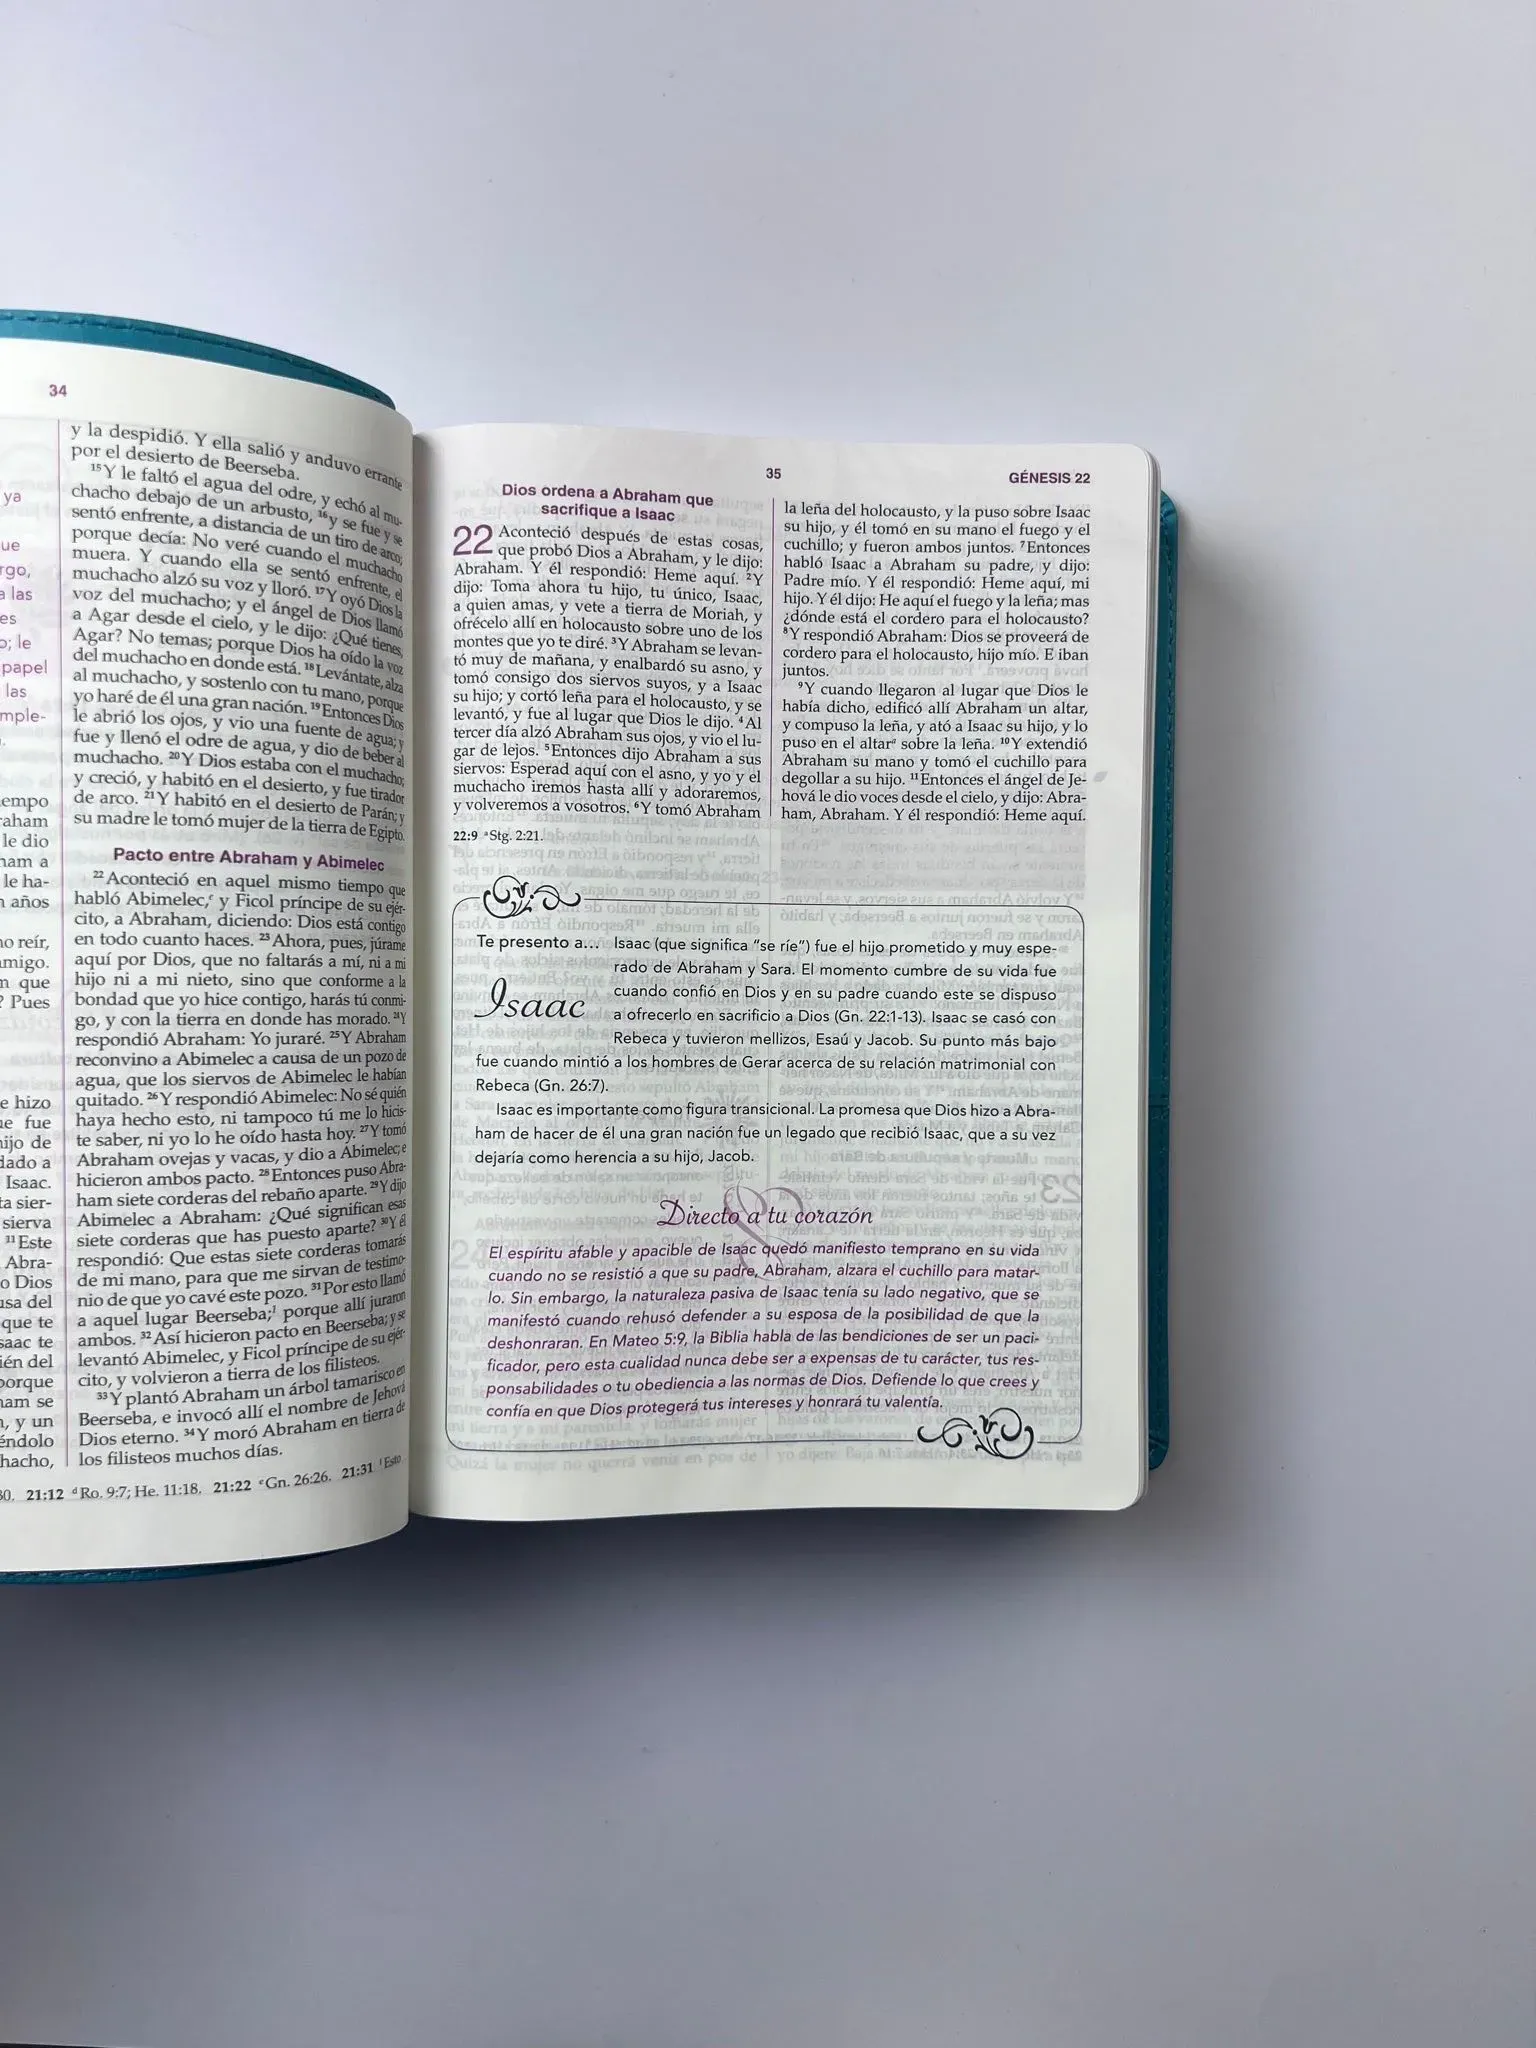 34
ya
ue
rgo,
a las
es
o; le
papel
las
mple-
empo
raham
le dio
ham a
le ha-
n años
no reír,
amigo.
n que
? Pues
e hizo
ue fue
hijo de
dado a
Isaac.
ta sier-
sierva
³¹Este
Abra-
o Dios
usa del
que te
saac te
ién del
porque
ham se
n, y un
éndolo
hacho,
y la despidió. Y ella salió y anduvo errante
por el desierto de Beerseba.
¹⁵Y le faltó el agua del odre, y echó al mu-
chacho debajo de un arbusto, ¹⁶y se fue y se
sentó enfrente, a distancia de un tiro de arco;
porque decía: No veré cuando el muchacho
muera. Y cuando ella se sentó enfrente, el
muchacho alzó su voz y lloró. ¹⁷Y oyó Dios la
voz del muchacho; y el ángel de Dios llamó
a Agar desde el cielo, y le dijo: ¿Qué tienes,
Agar? No temas; porque Dios ha oído la voz
del muchacho en donde está. ¹⁸Levántate, alza
al muchacho, y sostenlo con tu mano, porque
yo haré de él una gran nación. ¹⁹Entonces Dios
le abrió los ojos, y vio una fuente de agua; y
fue y llenó el odre de agua, y dio de beber al
muchacho. ²⁰Y Dios estaba con el muchacho;
y creció, y habitó en el desierto, y fue tirador
de arco. ²¹Y habitó en el desierto de Parán; y
su madre le tomó mujer de la tierra de Egipto.
Pacto entre Abraham y Abimelec
²²Aconteció en aquel mismo tiempo que
habló Abimelec,ᵉ y Ficol príncipe de su ejér-
cito, a Abraham, diciendo: Dios está contigo
en todo cuanto haces. ²³Ahora, pues, júrame
aquí por Dios, que no faltarás a mí, ni a mi
hijo ni a mi nieto, sino que conforme a la
bondad que yo hice contigo, harás tú conmi-
go, y con la tierra en donde has morado. ²⁴Y
respondió Abraham: Yo juraré. ²⁵Y Abraham
reconvino a Abimelec a causa de un pozo de
agua, que los siervos de Abimelec le habían
quitado. ²⁶Y respondió Abimelec: No sé quién
haya hecho esto, ni tampoco tú me lo hicis-
te saber, ni yo lo he oído hasta hoy. ²⁷Y tomó
Abraham ovejas y vacas, y dio a Abimelec; e
hicieron ambos pacto. ²⁸Entonces puso Abra-
ham siete corderas del rebaño aparte. ²⁹Y dijo
Abimelec a Abraham: ¿Qué significan esas
siete corderas que has puesto aparte? ³⁰Y él
respondió: Que estas siete corderas tomarás
de mi mano, para que me sirvan de testimo-
nio de que yo cavé este pozo. ³¹Por esto llamó
a aquel lugar Beerseba;ᶠ porque allí juraron
ambos. ³²Así hicieron pacto en Beerseba; y se
levantó Abimelec, y Ficol príncipe de su ejér-
cito, y volvieron a tierra de los filisteos.
³³Y plantó Abraham un árbol tamarisco en
Beerseba, e invocó allí el nombre de Jehová
Dios eterno. ³⁴Y moró Abraham en tierra de
los filisteos muchos días.
30. 21:12 ᵈRo. 9:7; He. 11:18. 21:22 ᵉGn. 26:26. 21:31 ᶠEsto
35
GÉNESIS 22
Dios ordena a Abraham que
sacrifique a Isaac
22 Aconteció después de estas cosas,
que probó Dios a Abraham, y le dijo:
Abraham. Y él respondió: Heme aquí. ²Y
dijo: Toma ahora tu hijo, tu único, Isaac,
a quien amas, y vete a tierra de Moriah, y
ofrécelo allí en holocausto sobre uno de los
montes que yo te diré. ³Y Abraham se levan-
tó muy de mañana, y enalbardó su asno, y
tomó consigo dos siervos suyos, y a Isaac
su hijo; y cortó leña para el holocausto, y se
levantó, y fue al lugar que Dios le dijo. ⁴Al
tercer día alzó Abraham sus ojos, y vio el lu-
gar de lejos. ⁵Entonces dijo Abraham a sus
siervos: Esperad aquí con el asno, y yo y el
muchacho iremos hasta allí y adoraremos,
y volveremos a vosotros. ⁶Y tomó Abraham
la leña del holocausto, y la puso sobre Isaac
su hijo, y él tomó en su mano el fuego y el
cuchillo; y fueron ambos juntos. ⁷Entonces
habló Isaac a Abraham su padre, y dijo:
Padre mío. Y él respondió: Heme aquí, mi
hijo. Y él dijo: He aquí el fuego y la leña; mas
¿dónde está el cordero para el holocausto?
⁸Y respondió Abraham: Dios se proveerá de
cordero para el holocausto, hijo mío. E iban
juntos.
⁹Y cuando llegaron al lugar que Dios le
había dicho, edificó allí Abraham un altar,
y compuso la leña, y ató a Isaac su hijo, y lo
puso en el altarᵃ sobre la leña. ¹⁰Y extendió
Abraham su mano y tomó el cuchillo para
degollar a su hijo. ¹¹Entonces el ángel de Je-
hová le dio voces desde el cielo, y dijo: Abra-
ham, Abraham. Y él respondió: Heme aquí.
22:9 ᵃStg. 2:21.
Te presento a...
Isaac
Isaac (que significa “se ríe”) fue el hijo prometido y muy espe-
rado de Abraham y Sara. El momento cumbre de su vida fue
cuando confió en Dios y en su padre cuando este se dispuso
a ofrecerlo en sacrificio a Dios (Gn. 22:1-13). Isaac se casó con
Rebeca y tuvieron mellizos, Esaú y Jacob. Su punto más bajo
fue cuando mintió a los hombres de Gerar acerca de su relación matrimonial con
Rebeca (Gn. 26:7).
Isaac es importante como figura transicional. La promesa que Dios hizo a Abra-
ham de hacer de él una gran nación fue un legado que recibió Isaac, que a su vez
dejaría como herencia a su hijo, Jacob.
Directo a tu corazón
El espíritu afable y apacible de Isaac quedó manifiesto temprano en su vida
cuando no se resistió a que su padre, Abraham, alzara el cuchillo para matar-
lo. Sin embargo, la naturaleza pasiva de Isaac tenía su lado negativo, que se
manifestó cuando rehusó defender a su esposa de la posibilidad de que la
deshonraran. En Mateo 5:9, la Biblia habla de las bendiciones de ser un paci-
ficador, pero esta cualidad nunca debe ser a expensas de tu carácter, tus res-
ponsabilidades o tu obediencia a las normas de Dios. Defiende lo que crees y
confía en que Dios protegerá tus intereses y honrará tu valentía.